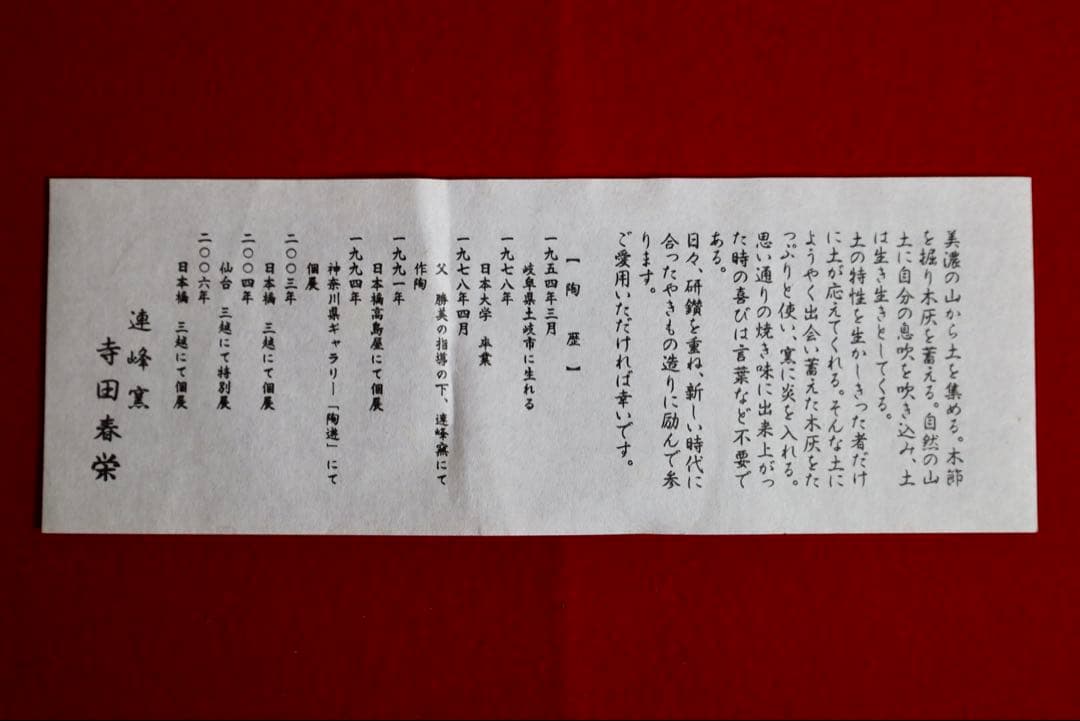 美濃の山から土を集める。木節
を掘り木灰を蓄える。自然の山
土に自分の息吹を吹き込み、土
は生き生きとしてくる。
土の特性を生かしきった者だけ
に土が応えてくれる。そんな土に
ようやく出会い蓄えた木灰をた
っぷりと使い、窯に炎を入れる。
思い通りの焼き味に出来上がっ
た時の喜びは言葉など不要で
ある。
日々、研鑽を重ね、新しい時代に
合ったやきもの造りに励んで参
ります。
ご愛用いただければ幸いです。
【陶 歴】
一九五四年三月
岐阜県土岐市に生れる
一九七八年
日本大学 卒業
一九七八年四月
父 勝美の指導の下、連峰窯にて
作陶
一九九一年
日本橋高島屋にて個展
一九九四年
神奈川県ギャラリー「陶遊」にて
個展
二〇〇三年
日本橋 三越にて個展
二〇〇四年
仙台 三越にて特別展
二〇〇六年
日本橋 三越にて個展
連峰窯
寺田春栄